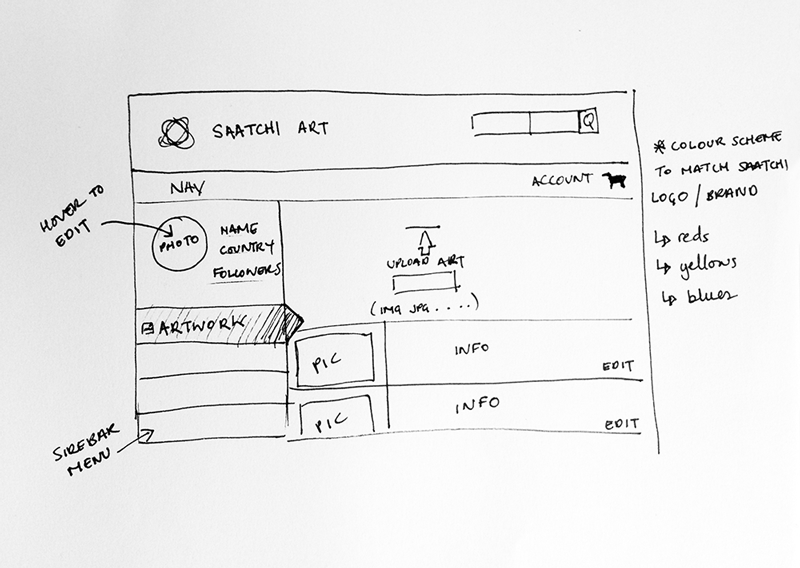 SAATCHI ART
Q
NAV
ACCOUNT
HOVER TO
EDIT
PHOTO
NAME
COUNTRY
FOLLOWERS
UPLOAD ART
(IMG JPG . . . . .)
ARTWORK
PIC
INFO
EDIT
PIC
INFO
EDIT
SIDEBAR
MENU
* COLOUR SCHEME
TO MATCH SAATCHI
LOGO / BRAND
↳ reds
↳ yellows
↳ blues